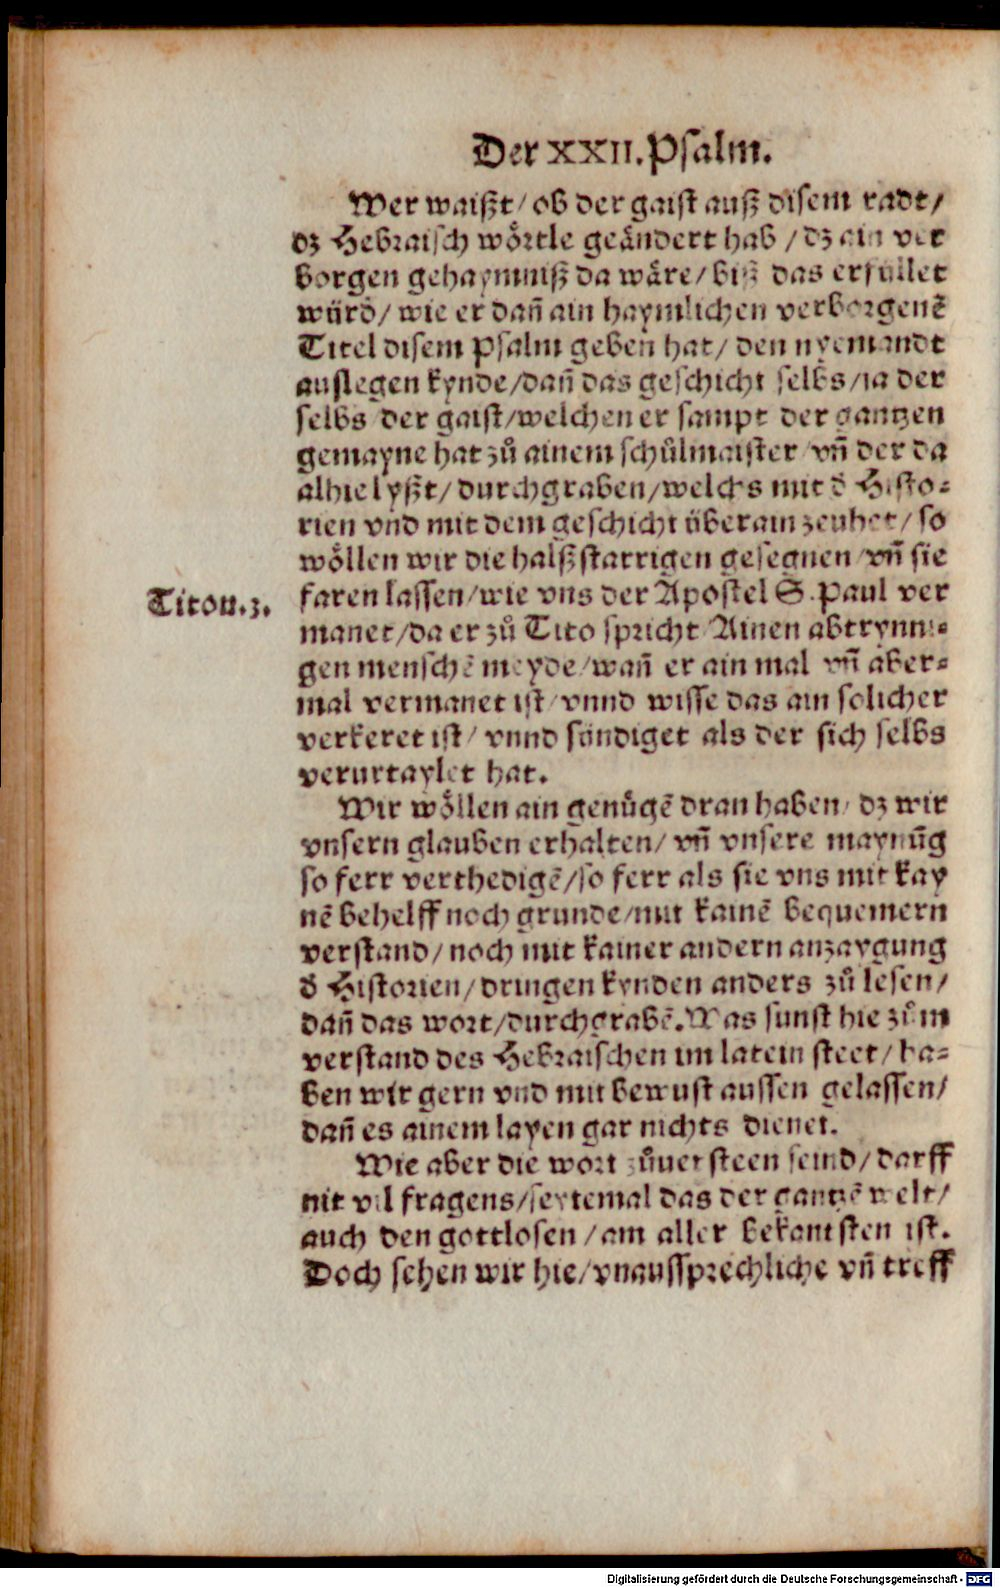 Der XXII. Psalm.
Wer waißt/ ob der gaist auß disem radt/
dz Hebraisch wörtle geändert hab / dz ain ver
borgen gehaymniß da wäre/ biß das erfüllet
würd/ wie er dañ ain haymlichen verborgenē
Titel disem Psalm geben hat/ den nyemandt
auslegen kynde/dañ das geschicht selbs/ia der
selbs der gaist/welchen er sampt der gantzen
gemayne hat zů ainem schůlmaister/vñ der da
alhie lyßt/ durchgraben/welchs mit d̕ Histo-
rien vnd mit dem geschicht überain zeuhet/ so
wöllen wir die halßstarrigen gesegnen/vñ sie
faren lassen/wie vns der Apostel S. Paul ver
Titon. 3.
manet/da er zů Tito spricht/Ainen abtrynni-
gen menschē meyde/wañ er ain mal vñ aber-
mal vermanet ist/vnnd wisse das ain solicher
verkeret ist/ vnnd sündiget als der sich selbs
verurtaylet hat.
Wir wöllen ain genügē dran haben/ dz wir
vnsern glauben erhalten/ vñ vnsere maynūg
so ferr verthedigē/so ferr als sie vns mit kay
nē behelff noch grunde/mit kainē bequemern
verstand/ noch mit kainer andern anzaygung
d̕ Historien/dringen kynden anders zů lesen/
dañ das wort/durchgrabē. Was sunst hie zům
verstand des Hebraischen im latein steet/ ha-
ben wir gern vnd mit bewust aussen gelassen/
dañ es ainem layen gar nichts dienet.
Wie aber die wort zůuersteen seind/darff
nit vil fragens/seytemal das der gantzē welt/
auch den gottlosen/am aller bekantsten ist.
Doch sehen wir hie/vnaussprechliche vñ treff
Digitalisierung gefördert durch die Deutsche Forschungsgemeinschaft - DFG